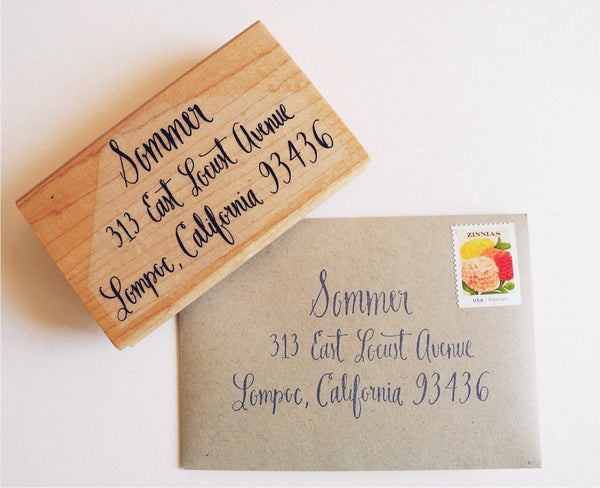 Sommer
313 East Locust Avenue
Lompoc, California 93436
ZINNIAS
USA forever
Sommer
313 East Locust Avenue
Lompoc, California 93436